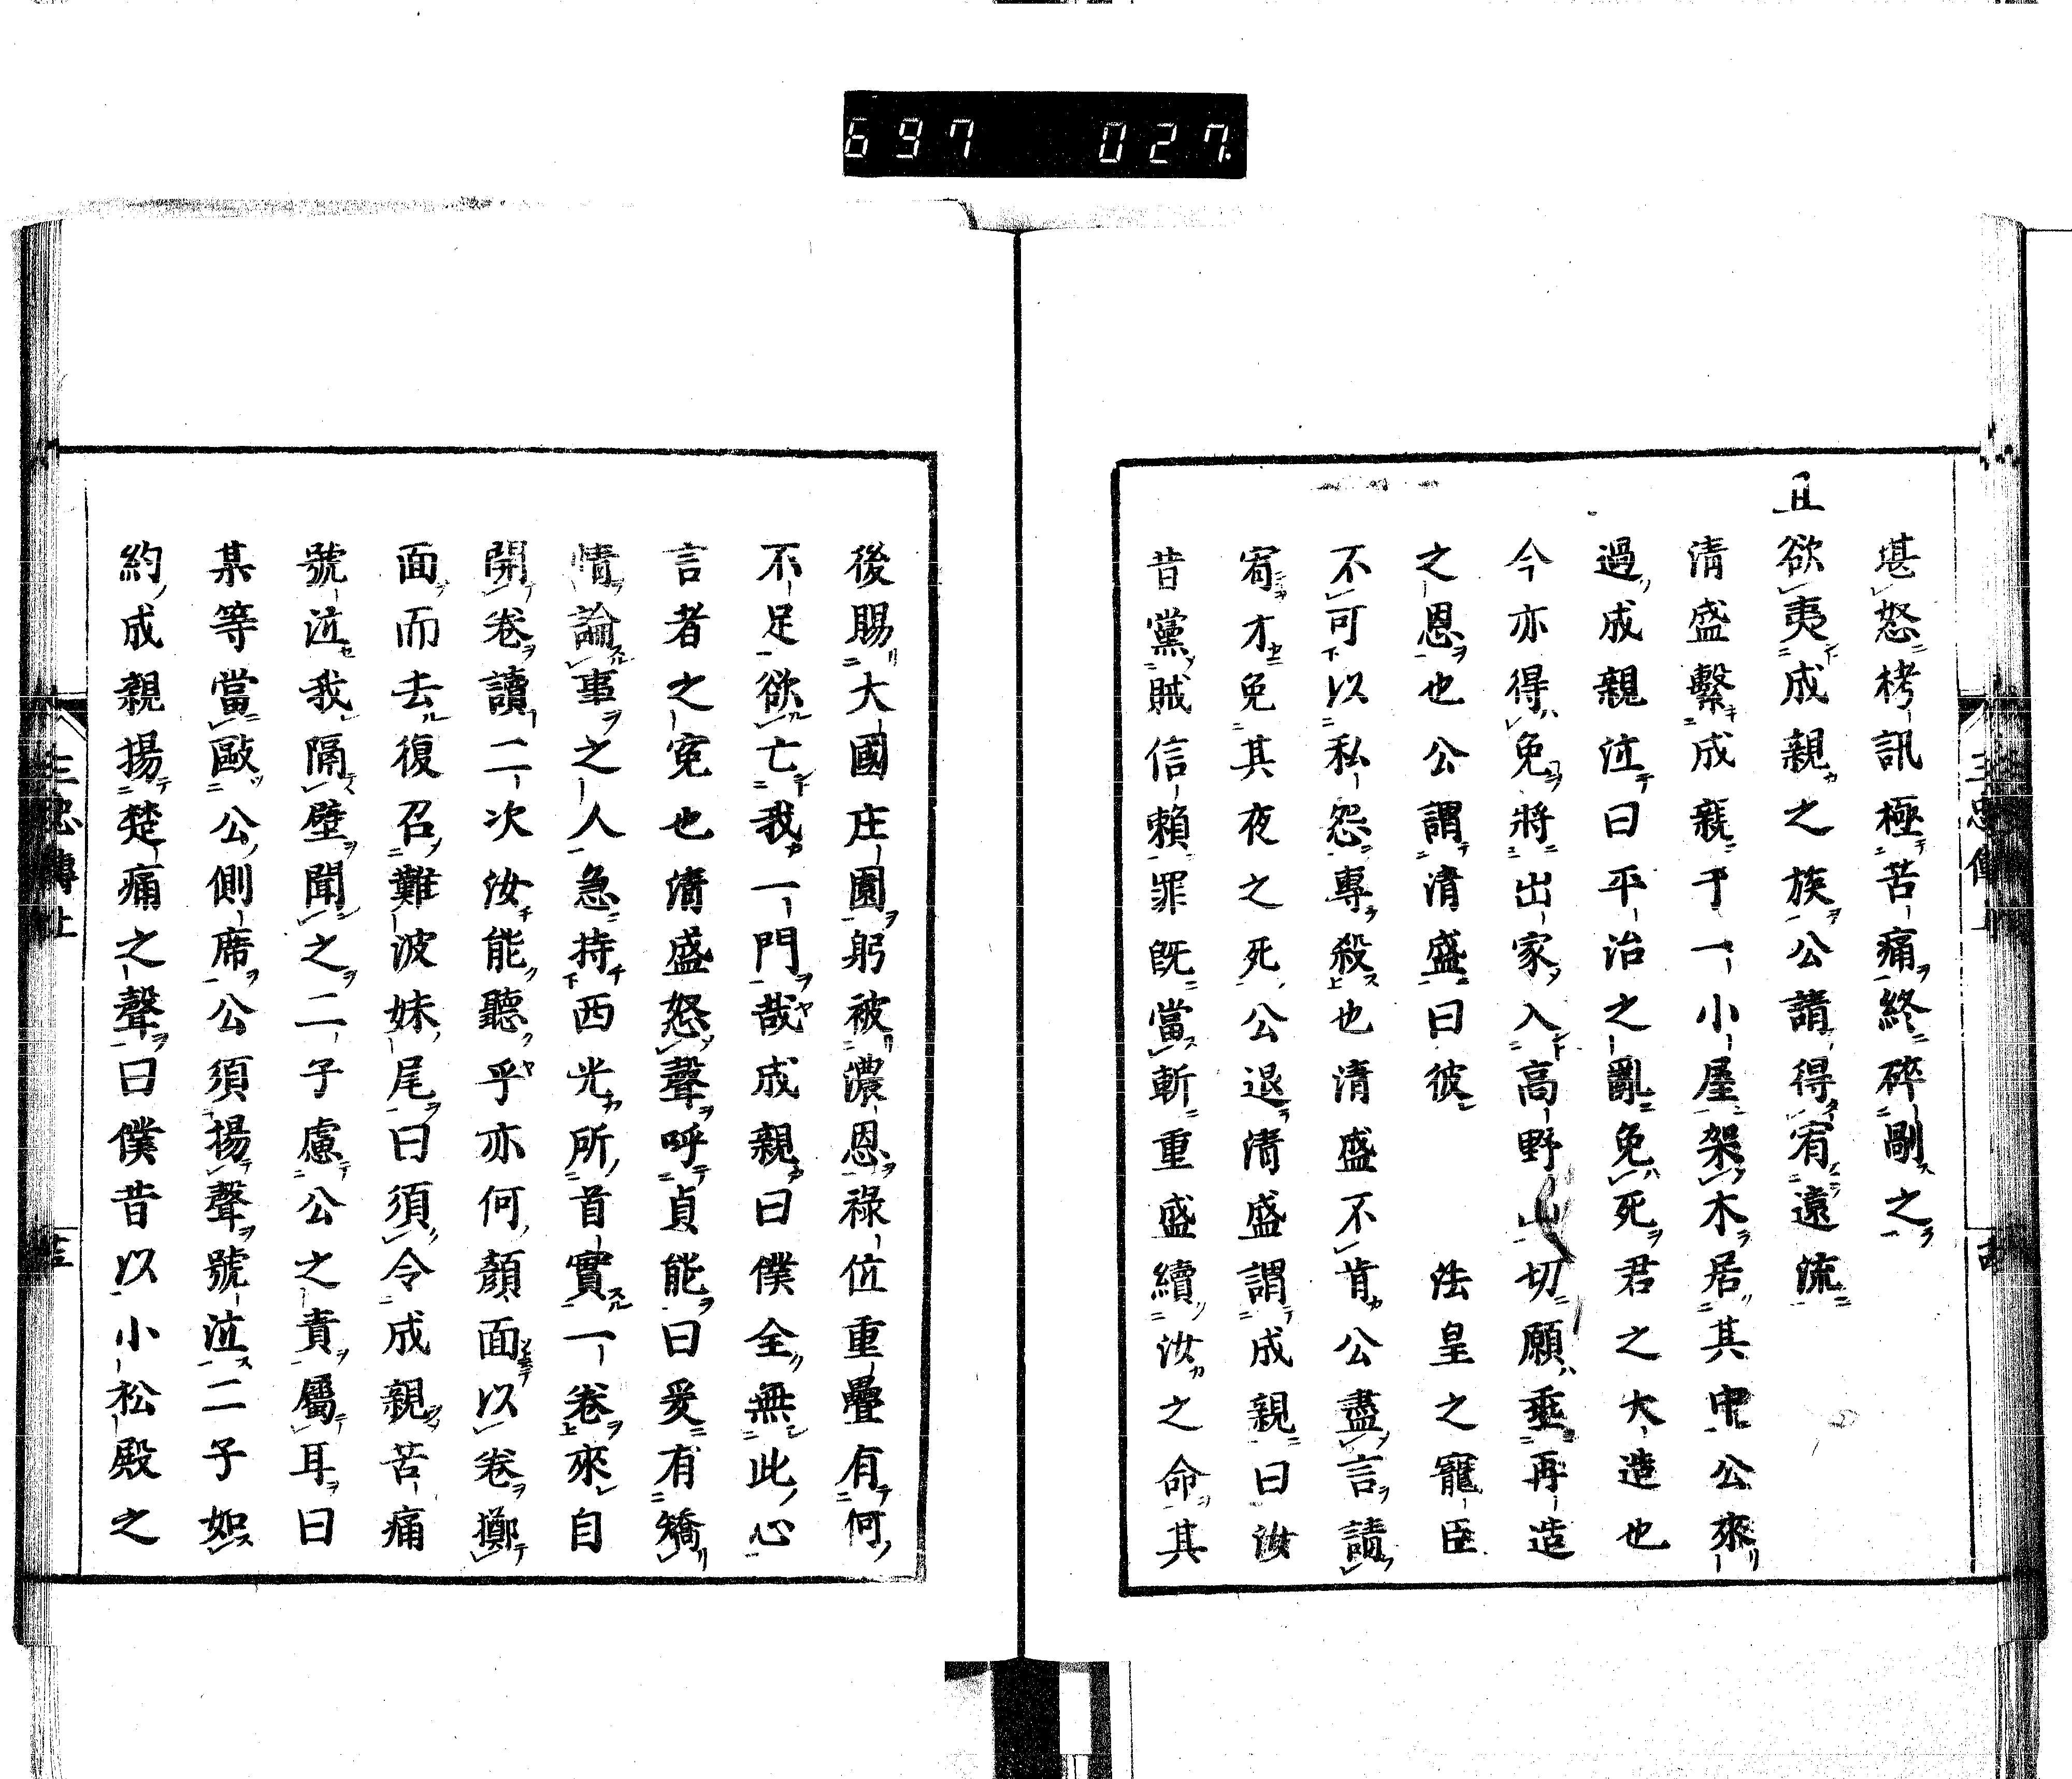 697 027
三忠傳上
堪怒栲訊極苦痛終碎剮之
且欲夷成親之族公請得宥遠流
清盛繫成親于一小屋架木居其中公來
過成親泣曰平治之亂免死君之大造也
今亦得免將出家入高野山切願垂再造
之恩也公謂清盛曰彼 法皇之寵臣
不可以私怨專殺也清盛不肯公盡言請
宥才免其夜之死公退清盛謂成親曰汝
昔黨賊信賴罪既當斬重盛續汝之命其
後賜大國庄園躬被濃恩祿位重疊有何
不足欲亡我一門哉成親曰僕全無此心
言者之寃也清盛怒聲呼貞能曰爰有矯
情論事之人急持西光所首實一卷來自
開卷讀二次汝能聽乎亦何顏面以卷擲
面而去復召難波妹尾曰須令成親苦痛
號泣我隔壁聞之二子慮公之責屬耳曰
某等當毆公側席公須揚聲號泣二子如
約成親揚楚痛之聲曰僕昔以小松殿之
三忠傳上